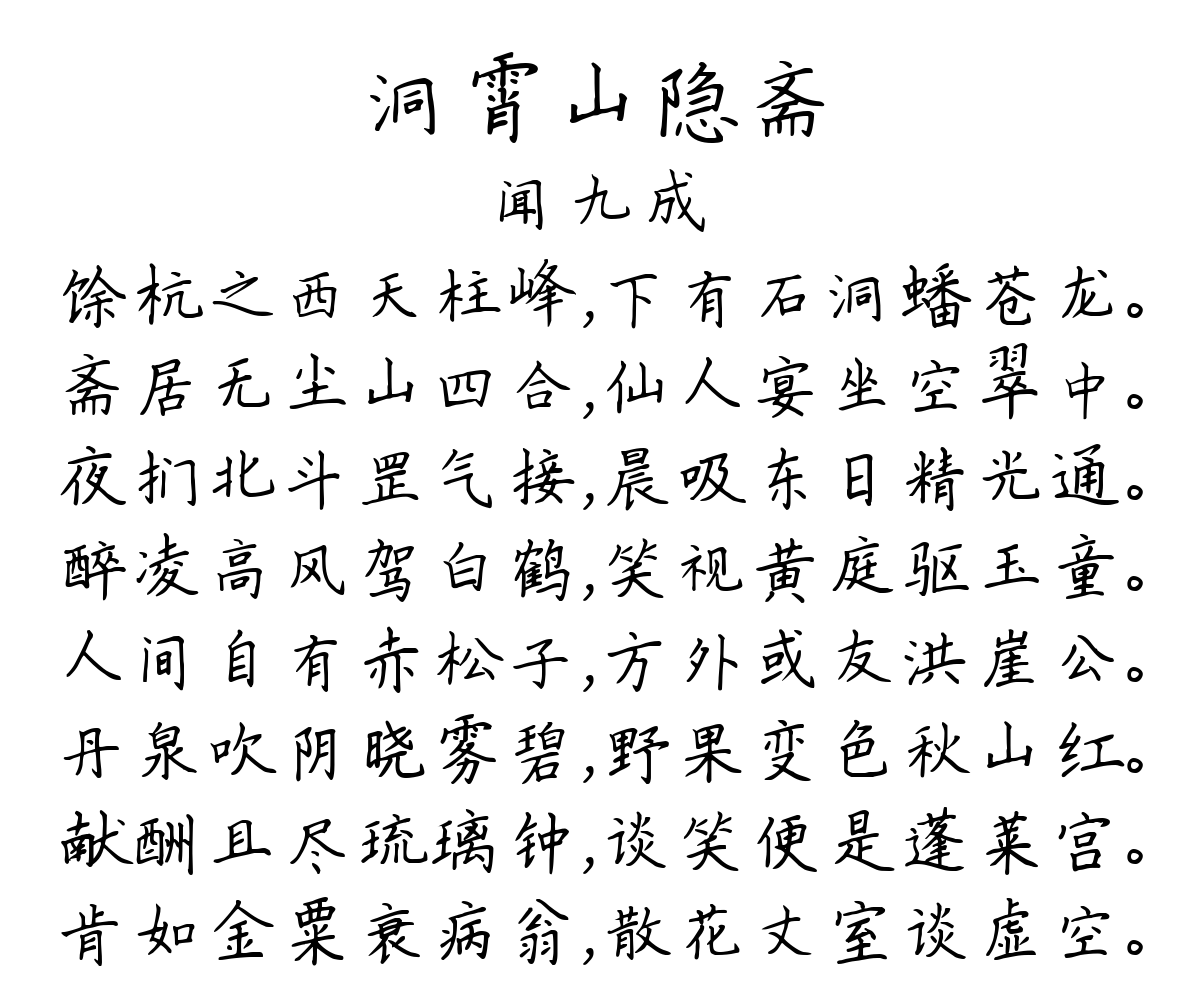 洞霄山隐斋
闻九成
馀杭之西天柱峰,下有石洞蟠苍龙。
斋居无尘山四合,仙人宴坐空翠中。
夜扪北斗罡气接,晨吸东日精光通。
醉凌高风驾白鹤,笑视黄庭驱玉童。
人间自有赤松子,方外或友洪崖公。
丹泉吹阴晓雾碧,野果变色秋山红。
献酬且尽琉璃钟,谈笑便是蓬莱宫。
肯如金粟衰病翁,散花丈室谈虚空。